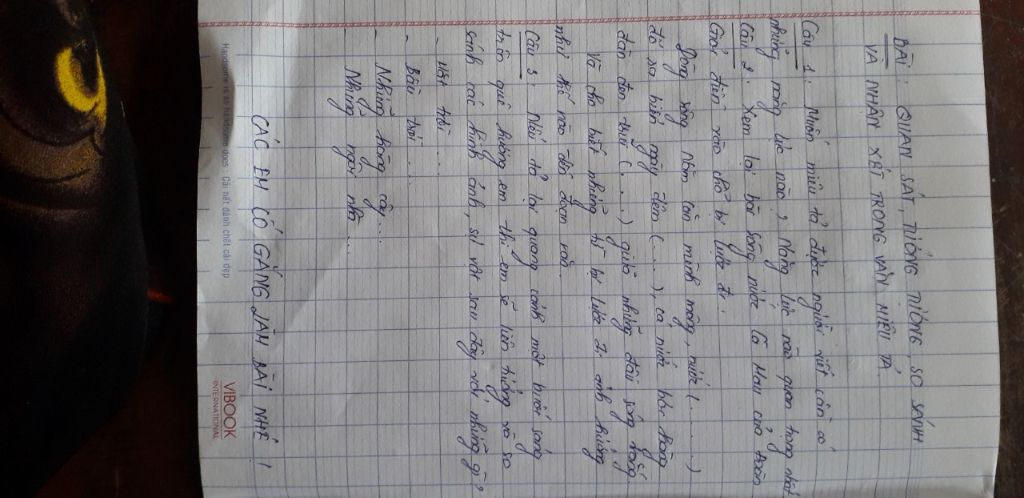 BÀI: QUAN SÁT, TƯỞNG TƯỢNG, SO SÁNH
VÀ NHẬN XÉT TRONG VĂN MIÊU TẢ.
Câu 1: Muốn miêu tả được người viết cần có
những năng lực nào? Năng lực nào quan trọng nhất
Câu 2: Xem lại bài sông nước Cà Mau của Đoàn
Giỏi điền vào chỗ bị lược đi.
Dòng sông Năm Căn mênh mông, nước (.......)
đổ ra biển ngày đêm (....), cá nước bơi hàng
đàn đen trũi (....) giữa những đầu sóng trắng
Và cho biết những từ bị lược đi ảnh hưởng
như thế nào đến đoạn văn.
Câu 3: Nếu tả lại quang cảnh một buổi sáng
trên quê hương em thì em sẽ liên tưởng và so
sánh các hình ảnh, sự vật sau đây với những gì?
- Mặt trời ....
- Bầu trời ....
- Những hàng cây ....
- Những ngôi nhà ....
CÁC EM CỐ GẮNG LÀM BÀI NHÉ!
Handsome is as handsome does : Cái nết đánh chết cái đẹp
VIBOOK
INTERNATIONAL